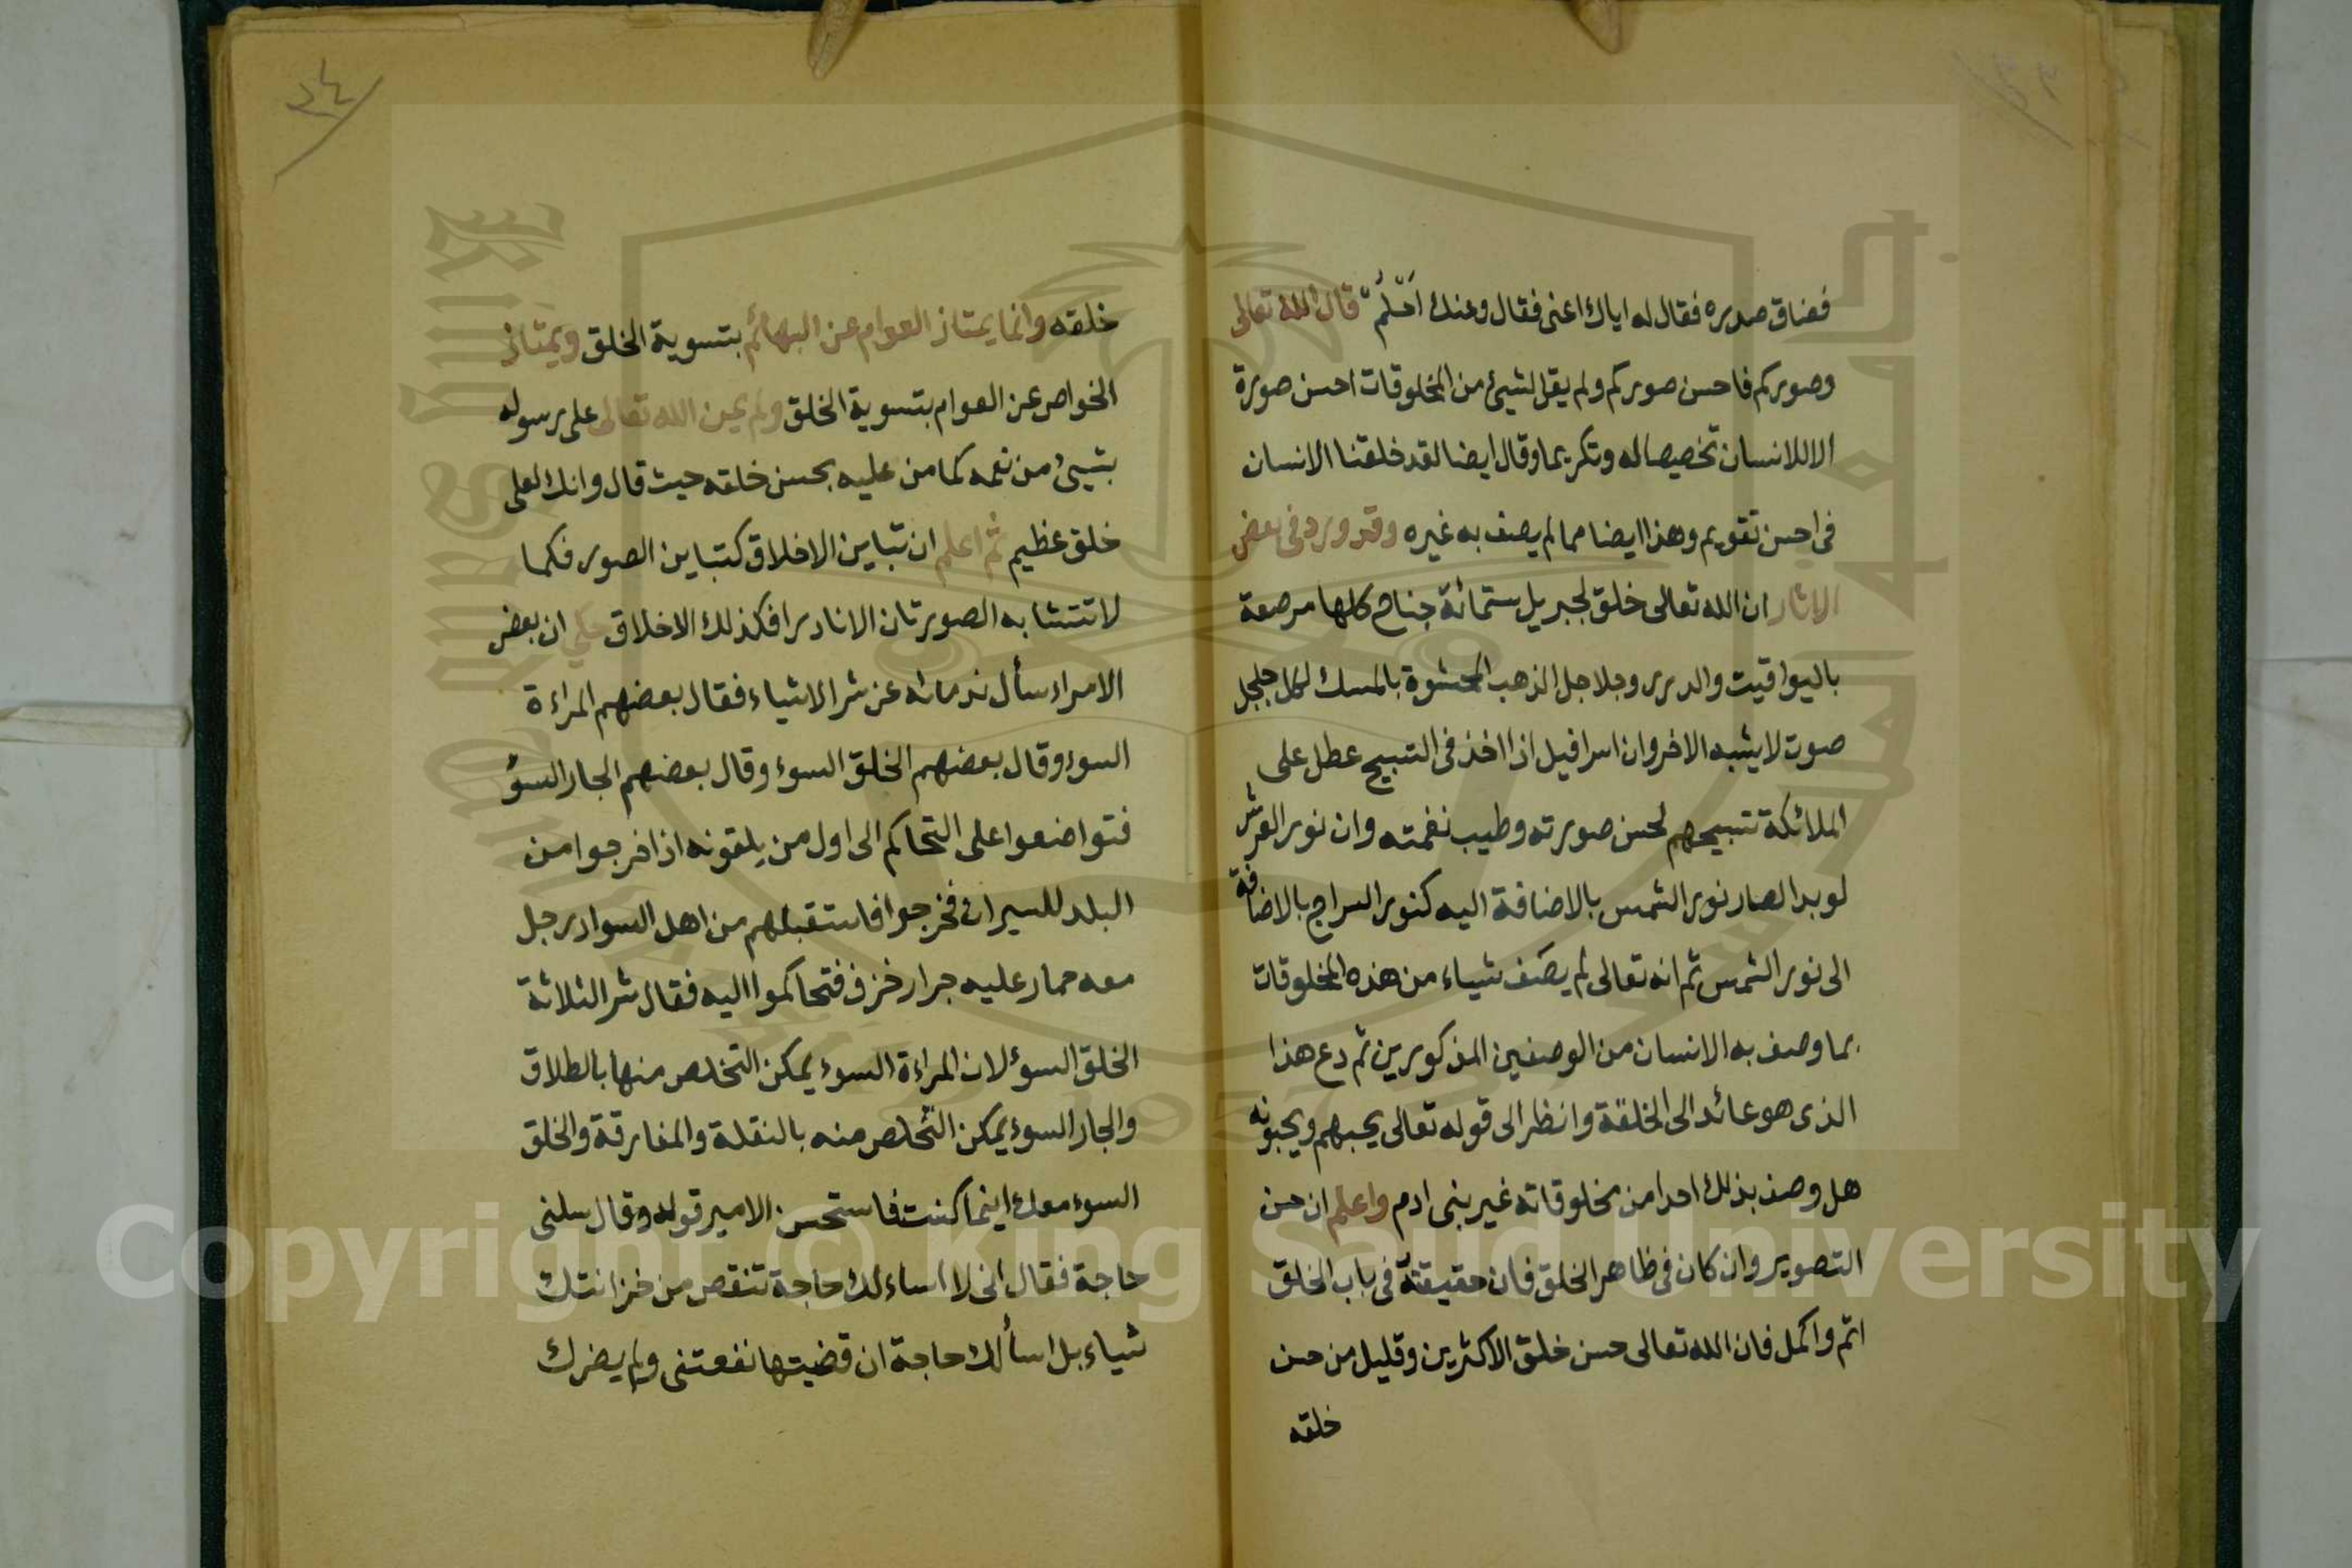 فضاق صدره فقال له اياك اعنى فقال وعنك احلم قال الله تعالى
وصوركم فاحسن صوركم ولم يقل لشيئ من المخلوقات احسن صورة
الا للانسان تخصيصا له وتكريما وقال ايضا لقد خلقنا الانسان
فى احسن تقويم وهذا ايضا مما لم يصف به غيره وقد ورد فى بعض
الاثار ان الله تعالى خلق لجبريل ستمائة جناح كلها مرصعة
باليواقيت والدرر وجلاجل الذهب المحشوة بالمسك لكل جلجل
صوت لا يشبه الاخر وان اسرافيل اذا اخذ فى التسبيح عطل على
الملائكة تسبيحهم لحسن صورته وطيب نغمته وان نور العرش
لو بدا لصار نور الشمس بالاضافة اليه كنور السراج بالاضافة
الى نور الشمس ثم انه تعالى لم يصف شياء من هذه المخلوقات
بما وصف به الانسان من الوصفين المذكورين ثم دع هذا
الذى هو عائد الى الخلقة وانظر الى قوله تعالى يحبهم ويحبونه
هل وصف بذلك احدا من مخلوقاته غير بنى ادم واعلم ان حسن
التصوير وان كان فى ظاهر الخلق فان حقيقته فى باب الخلق
اتم واكمل فان الله تعالى حسن خلق الاكثرين وقليل من حسن
خلقه
٢٤
خلقه وانما يمتاز العوام عن البهائم بتسوية الخلق ويمتاز
الخواص عن العوام بتسوية الخلق ولم يمن الله تعالى على رسوله
بشيئ من نعمه كما من عليه بحسن خلقه حيث قال وانك لعلى
خلق عظيم ثم اعلم ان تباين الاخلاق كتباين الصور فكما
لا تتشابه الصورتان الا نادرا فكذلك الاخلاق حكي ان بعض
الامراء سأل ندمائه عن شر الاشياء فقال بعضهم المراءة
السوء وقال بعضهم الخلق السوء وقال بعضهم الجار السؤ
فتواضعوا على التحاكم الى اول من يلقونه اذا خرجوا من
البلد للسيران فخرجوا فاستقبلهم من اهل السواد رجل
معه حمار عليه جرار خزف فتحاكموا اليه فقال شر الثلاثة
الخلق السوء لان المراءة السوء يمكن التخلص منها بالطلاق
والجار السوء يمكن التخلص منه بالنقلة والمفارقة والخلق
السوء معك اينما كنت فاستحسن الامير قوله وقال سلنى
حاجة فقال انى لا اساءلك حاجة تنقص من خزانتك
شياء بل اسألك حاجة ان قضيتها نفعتنى ولم يضرك
Copyright © King Saud University